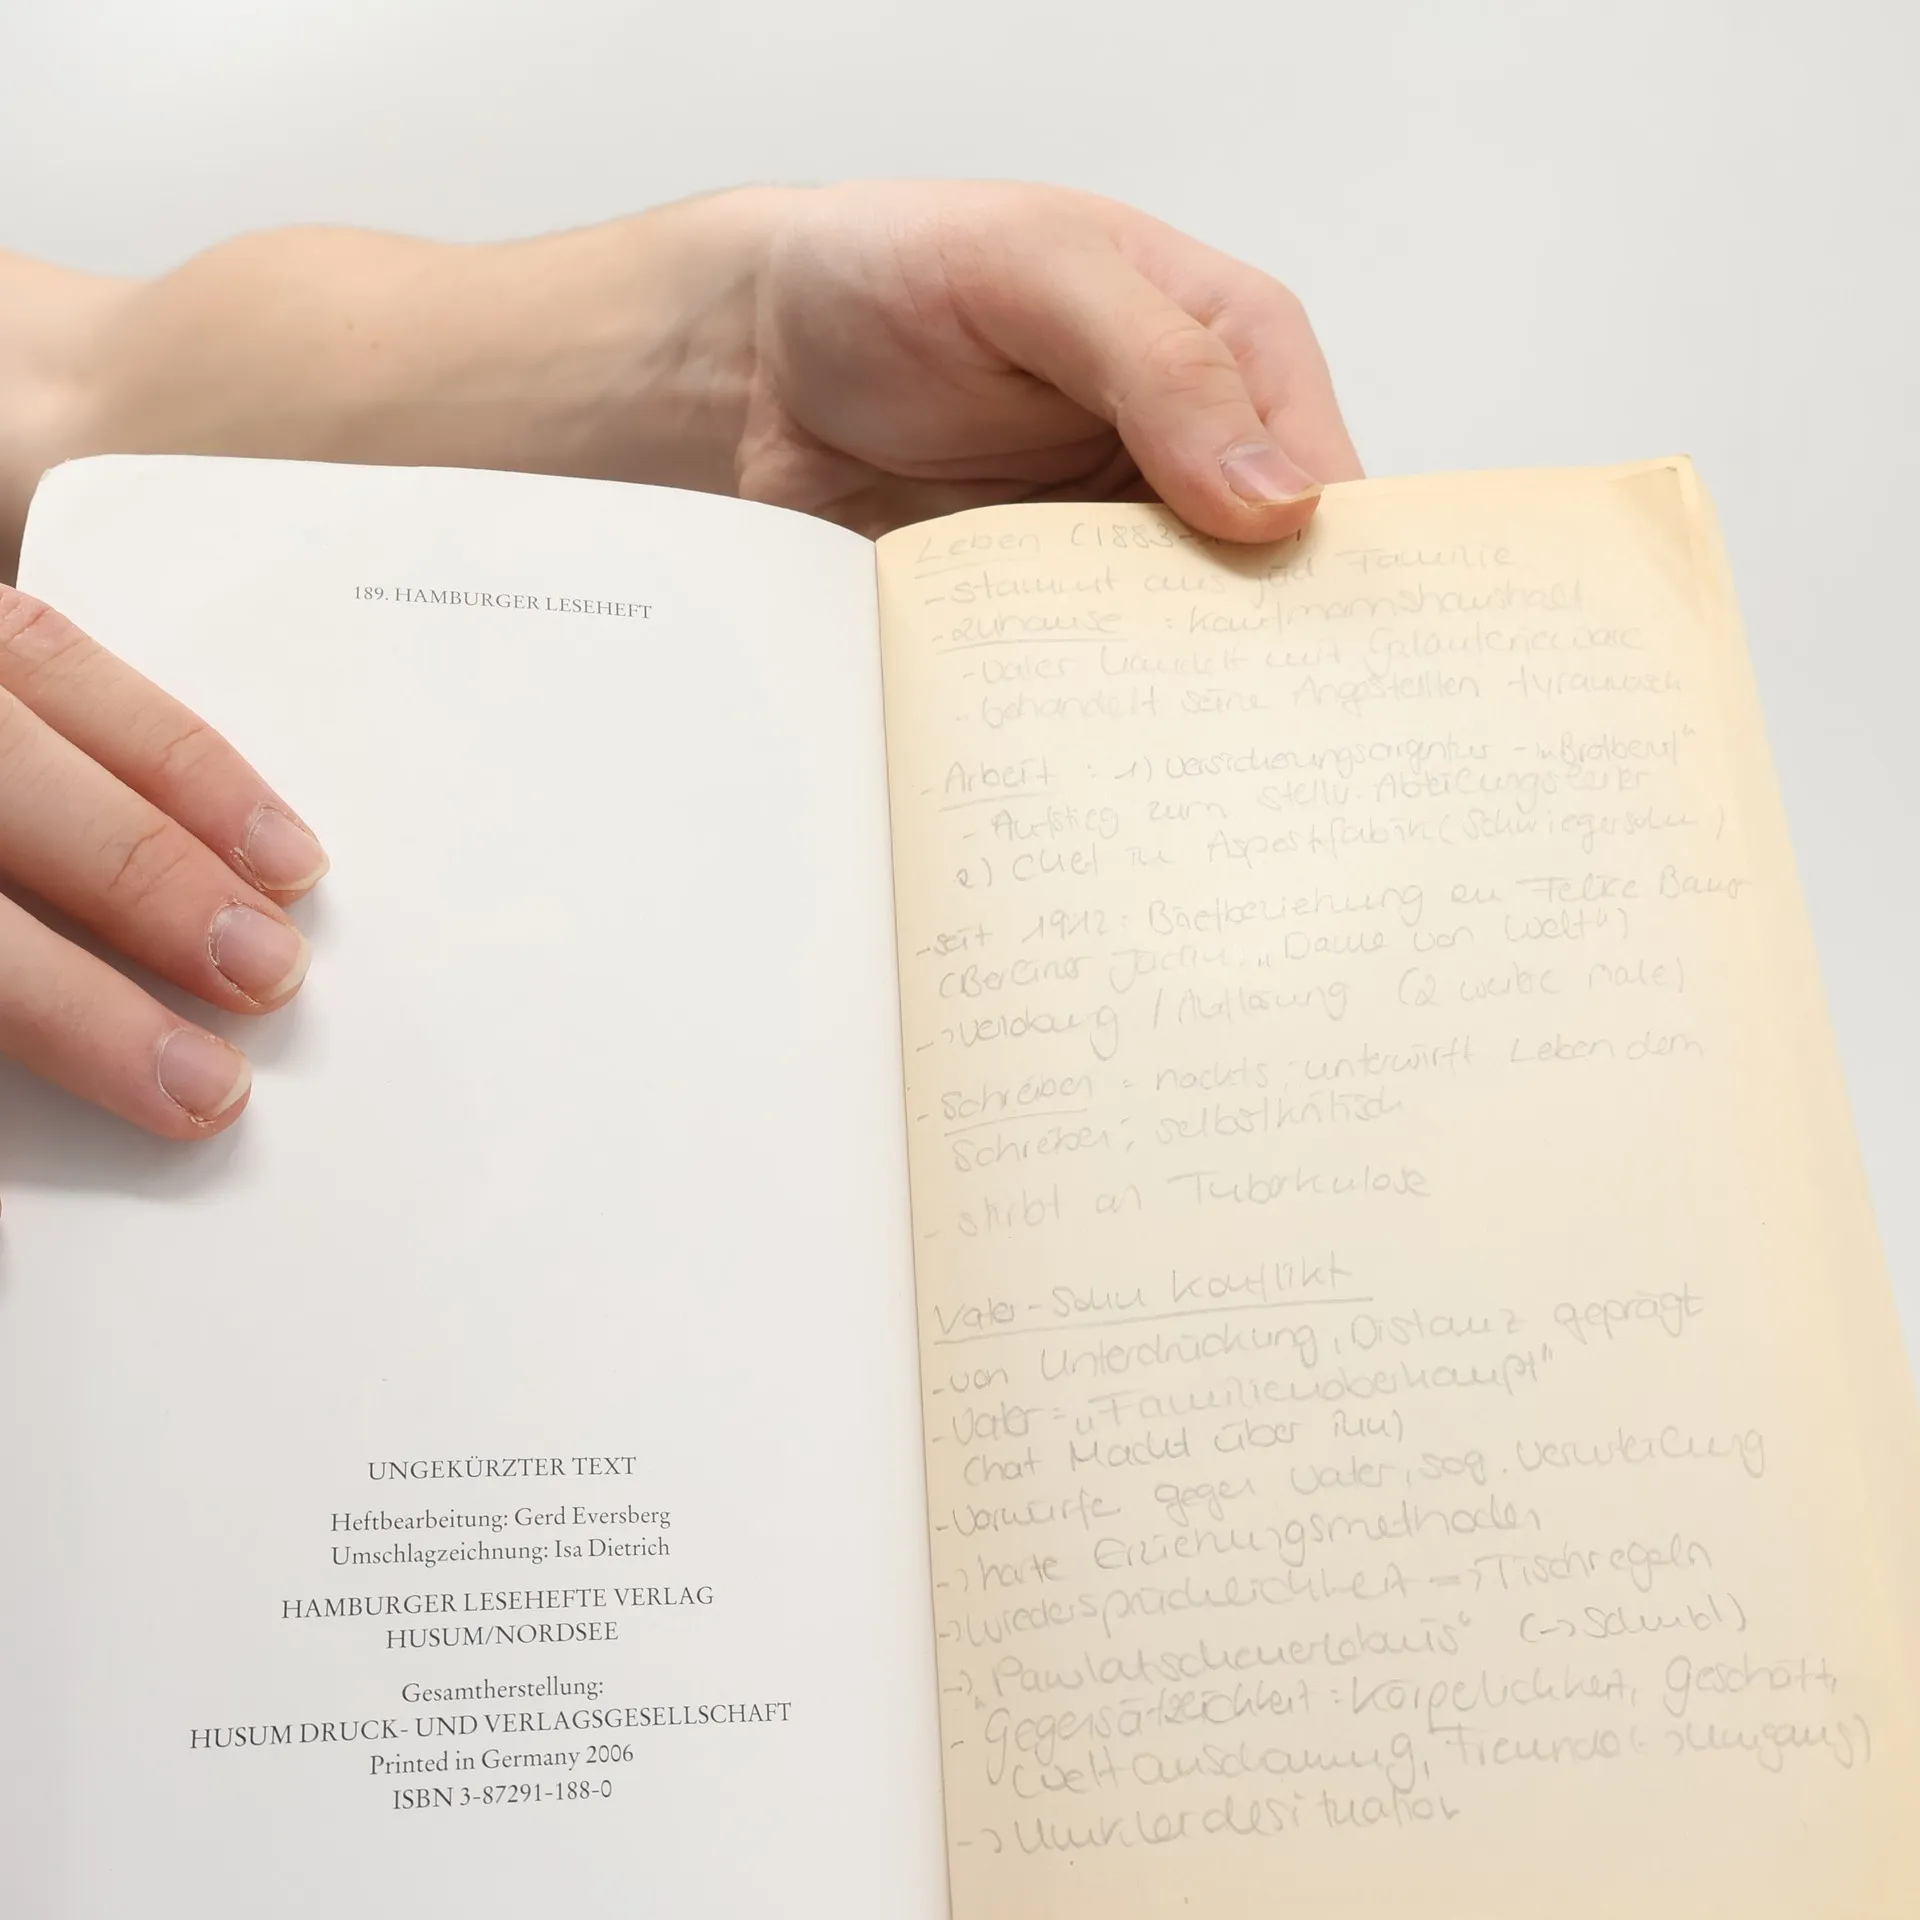 189. HAMBURGER LESEHEFT
UNGEKÜRZTER TEXT
Heftbearbeitung: Gerd Eversberg
Umschlagzeichnung: Isa Dietrich
HAMBURGER LESEHEFTE VERLAG
HUSUM/NORDSEE
Gesamtherstellung:
HUSUM DRUCK- UND VERLAGSGESELLSCHAFT
Printed in Germany 2006
ISBN 3-87291-188-0
Leben (1883-
- stammt aus jüd Familie
- zuhause : Kaufmannshaushalt
- Vater handelt mit Galanterieware
- behandelt seine Angestellten tyrannisch
- Arbeit : 1) Versicherungsagentur - „Brotberuf"
- Aufstieg zum stellv. Abteilungsleiter
2) Chef in Aspestfabrik (Schwiegersohn)
- seit 1912: Briefbeziehung zu Felice Bauer
(Berliner Jüdin, „Dame von Welt")
-> Verlobung / Auflösung (2 weitere Male)
- Schreiben = nachts, unterwirft Leben dem
Schreiben; selbstkritisch
- stirbt an Tuberkulose
Vater-Sohn Konflikt
- von Unterdrückung, Distanz geprägt
- Vater = „Familienoberhaupt"
(hat Macht über ihn)
- Vorwürfe gegen Vater, sog. Verurteilung
-> harte Erziehungsmethoden
-> Wiedersprüchlichkeit => Tischregeln
-> „Pawlatscheerlebnis" (->
- Gegensätzlichkeit : Körperlichkeit, Geschäft,
Weltanschauung, Freunde (-> Umgang)
->